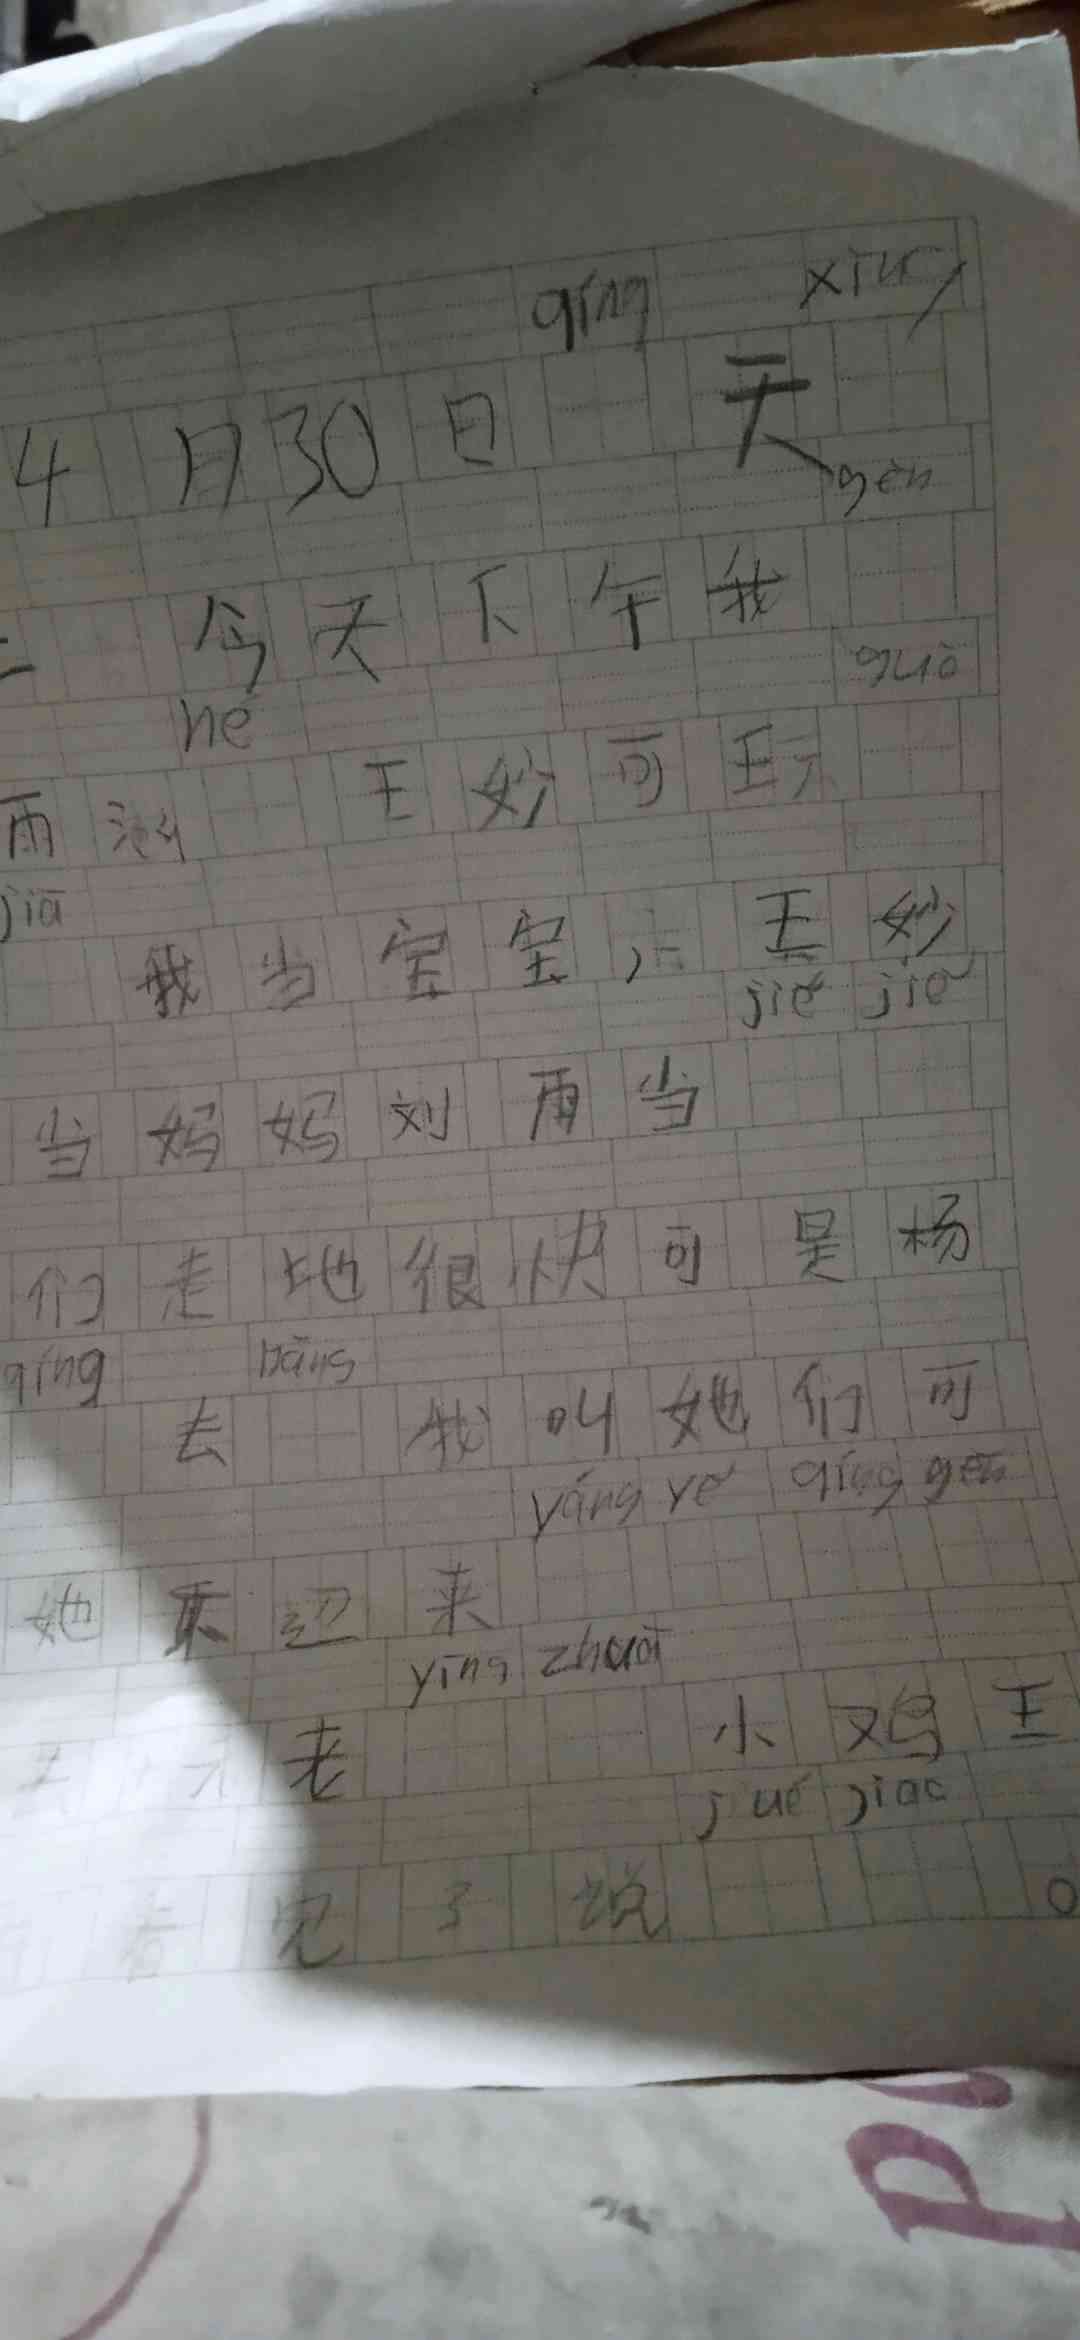 qíng xīng
4月30日 天
gēn
今天下午我
hé guò
雨 王妙可玩
jiā
我当宝宝，王妙
jiě jiě
当妈妈刘雨当
们走地很快可是杨
qíng bāng
去 我叫她们可
yáng yě qíng gēn
她不 来
yīng zhuō
老 小鸡王
jué jiao
看见了说 。